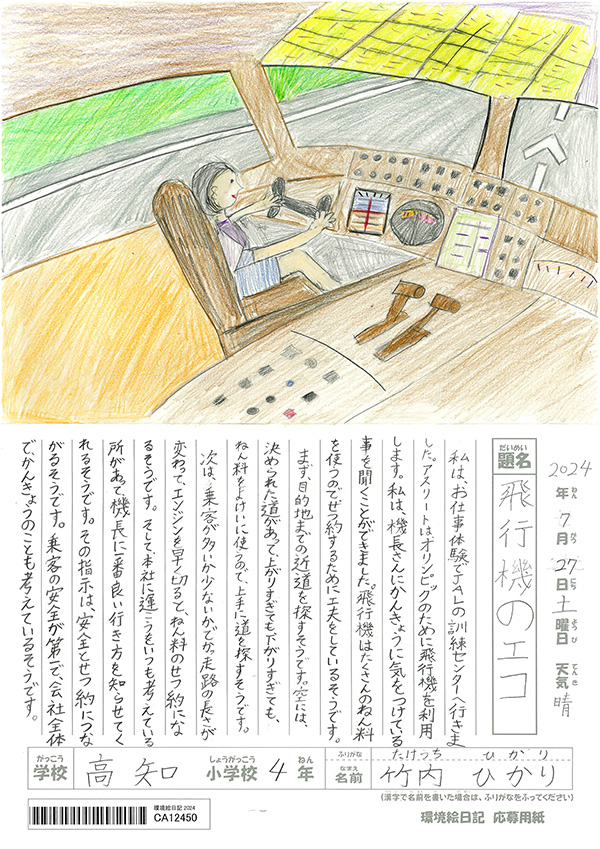 2024年7月27日土曜日 天気 晴
ねん がつ にち ようび てんき
だいめい
題名
飛行機のエコ
私は、お仕事体験でJALの訓練センターへ行きま
した。アスリートはオリンピックのために飛行機を利用
します。私は、機長さんにかんきょうに気をつけている
事を聞くことができました。飛行機はたくさんのねん料
を使うのでせつ約するために工夫をしているそうです。
まず、目的地までの近道を探すそうです。空には、
決められた道があって、上がりすぎても下がりすぎても、
ねん料をよけいに使うので、上手に道を探すそうです。
次は、乗客が多いか少ないかでかっ走路の長さが
変わって、エンジンを早く切ると、ねん料のせつ約にな
るそうです。そして、本社に運こうをいつも考えている
所があって、機長に一番良い行き方を知らせてく
れるそうです。その指示は、安全とせつ約につな
がるそうです。乗客の安全が第一で、会社全体
で、かんきょうのことも考えているそうです。
がっこう しょうがっこう ねん ふりがな たけうち ひかり
学校 高知 小学校 4年 なまえ 名前 竹内 ひかり
(漢字で名前を書いた場合は、ふりがなをふってください)
環境絵日記2024
CA12450
環境絵日記 応募用紙